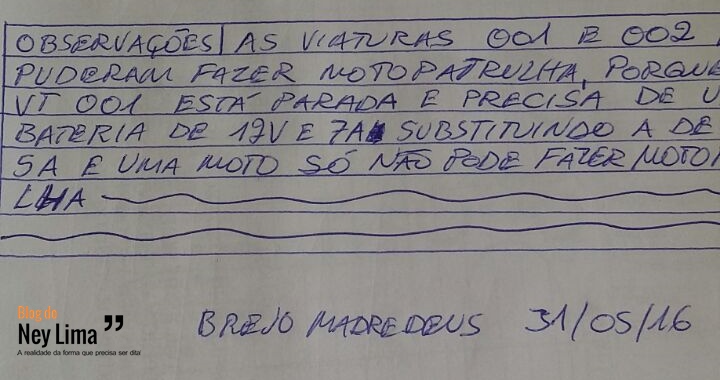 OBSERVAÇÕES AS VIATURAS 001 E 002
PUDERAM FAZER MOTOPATRULHA, PORQUE
VT 001 ESTÁ PARADA E PRECISA DE U
BATERIA DE 12V E 7A SUBSTITUINDO A DE
5A E UMA MOTO SÓ NÃO PODE FAZER MOTO
LHA
BREJO MADRE DEUS 31/05/16
Blog do
Ney Lima
A realidade da forma que precisa ser dita